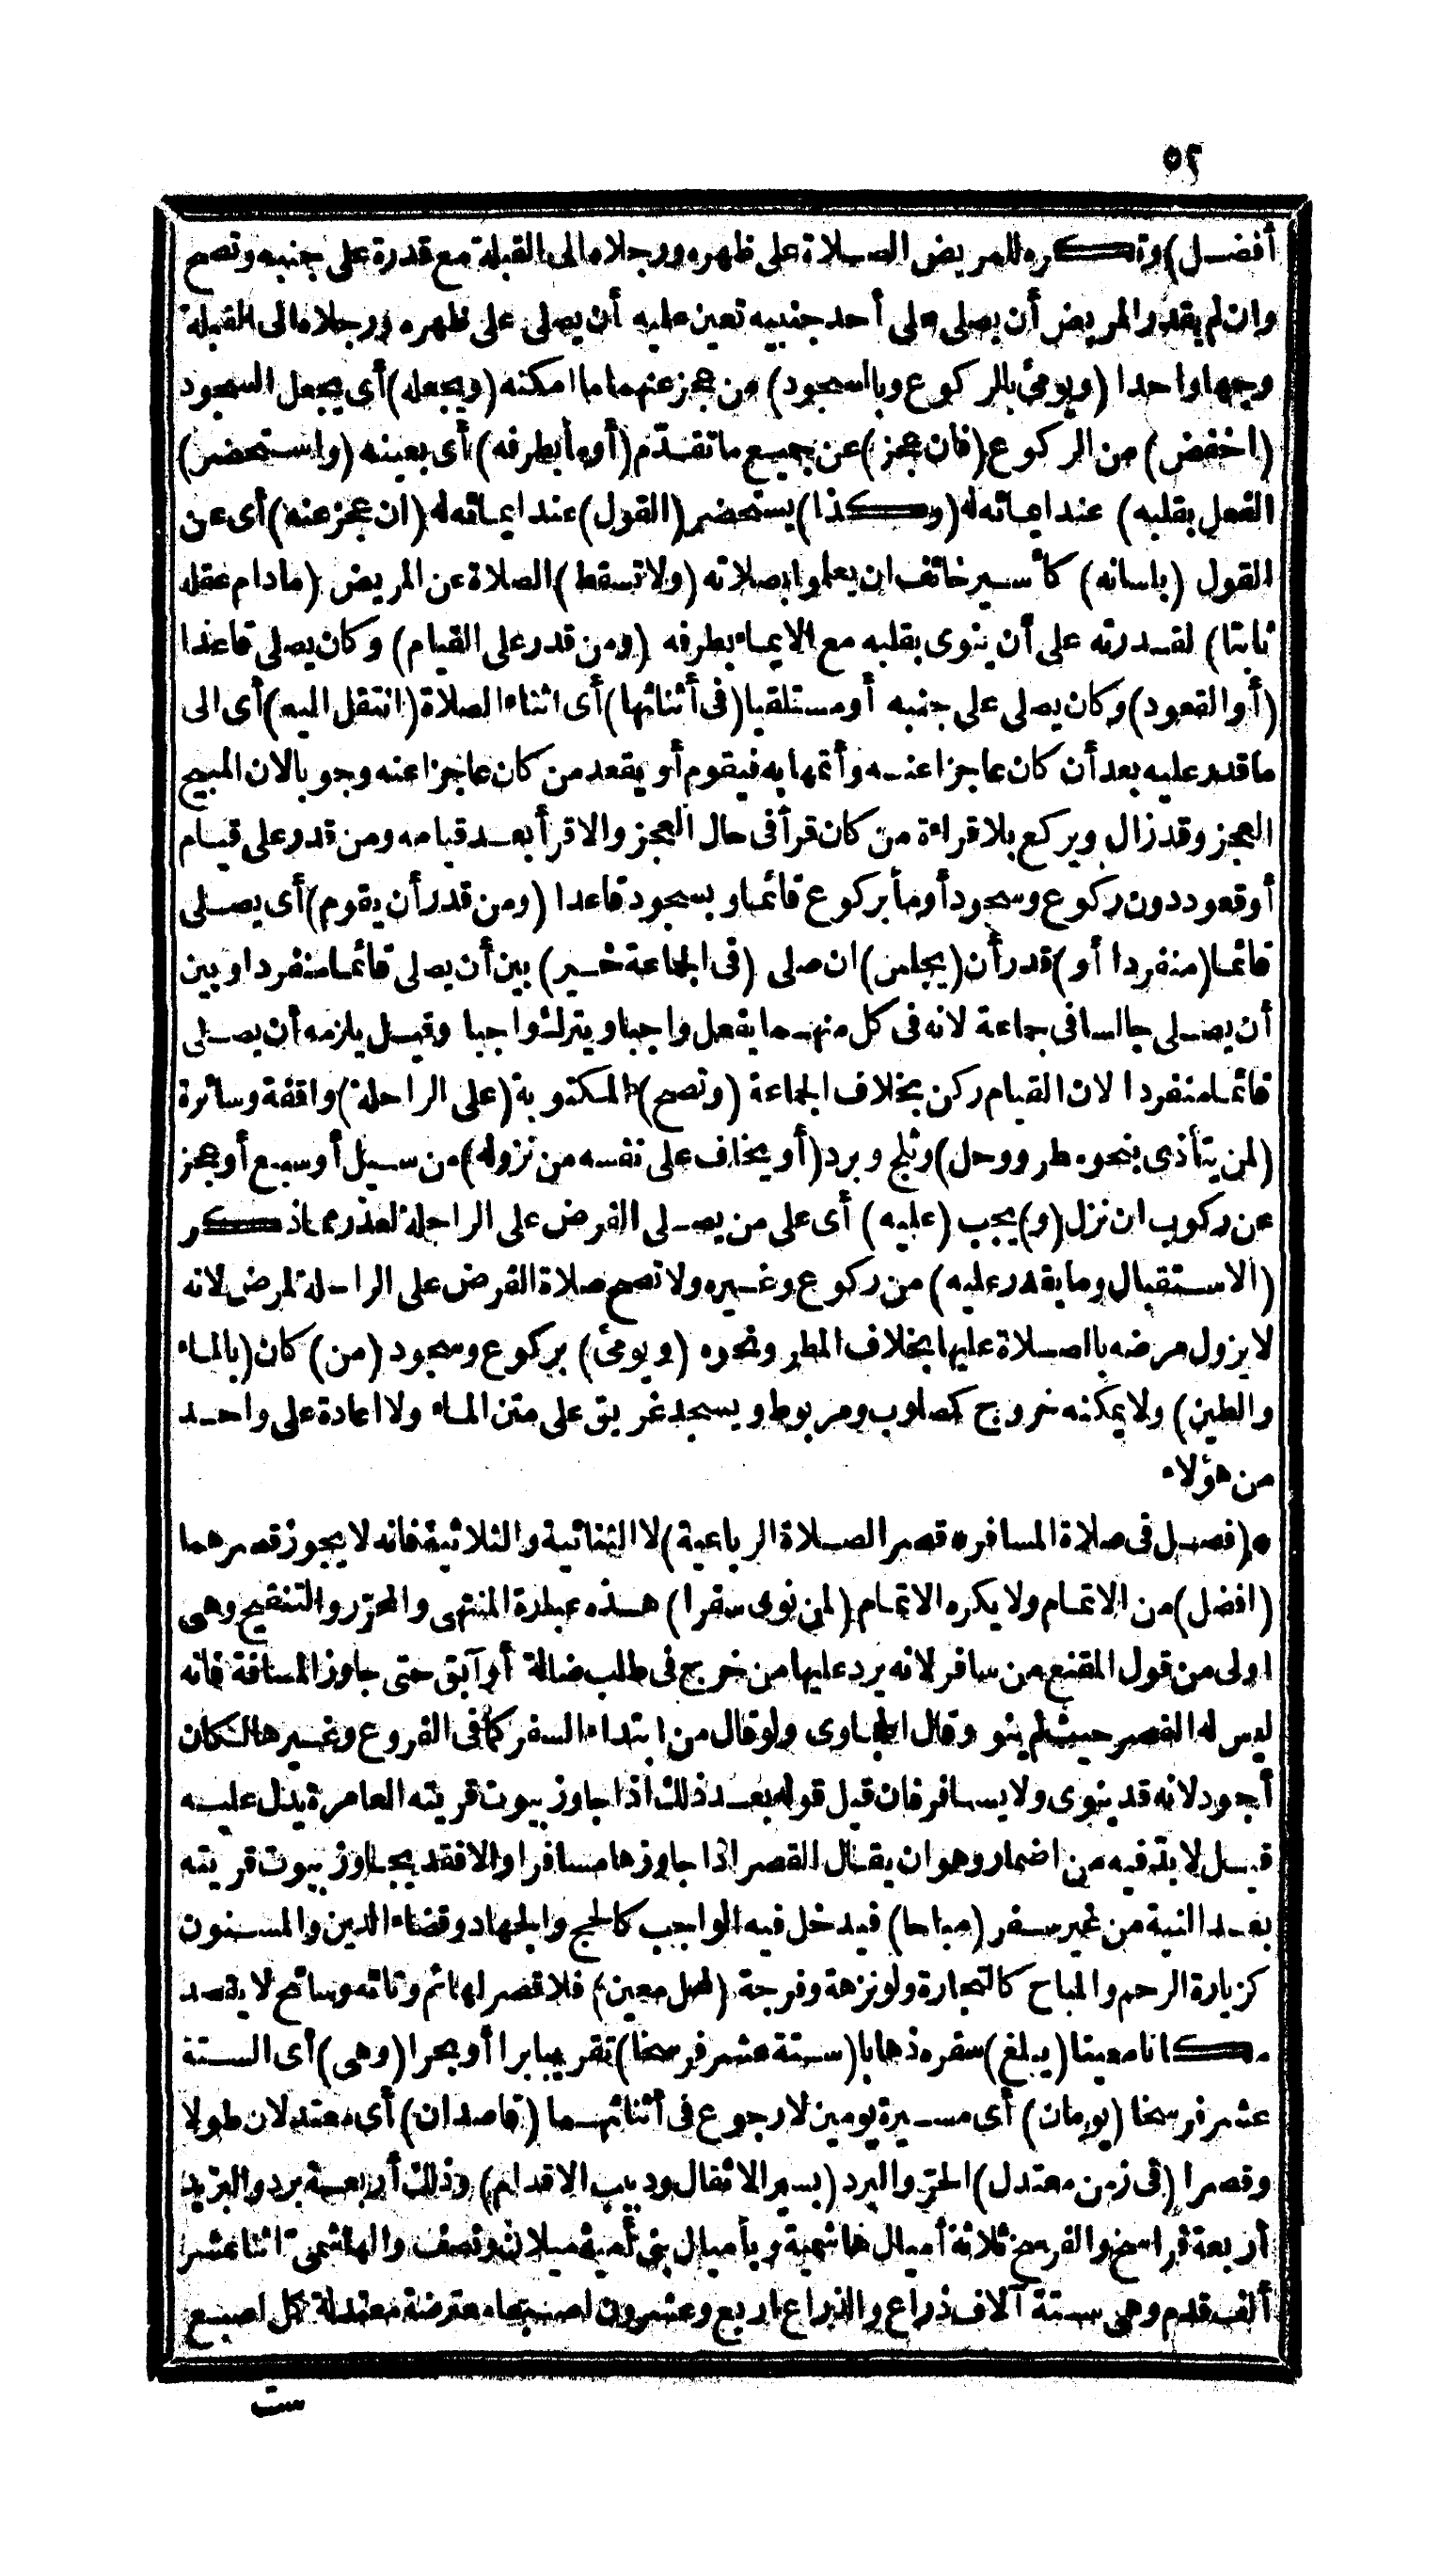 ٥٢
أفضل) وتكره للمريض الصلاة على ظهره ورجلاه الى القبلة مع قدرة على جنبه وتصح
وان لم يقدر المريض أن يصلى على أحد جنبيه تعين عليه أن يصلى على ظهره ورجلاه الى القبلة
وجها واحدا (ويومئ بالركوع وبالسجود) من عجز عنهما ما امكنه (ويجعله) أى يجعل السجود
(اخفض) من الركوع (فان عجز) عن جميع ما تقدّم (أومأ بطرفه) أى بعينه (واستحضر)
الفعل بقلبه) عند ايمائه له (وكذا) يستحضر (القول) عند ايمائه له (ان عجز عنه) أى عن
القول (بلسانه) كأسير خائف ان يعلموا بصلاته (ولا تسقط) الصلاة عن المريض (مادام عقله
ثابتا) لقدرته على أن ينوى بقلبه مع الايماء بطرفه (ومن قدر على القيام) وكان يصلى قاعدا
(أو القعود) وكان يصلى على جنبه أو مستلقيا (فى أثنائها) أى اثناء الصلاة (انتقل اليه) أى الى
ما قدر عليه بعد أن كان عاجزا عنه وأتمها به فيقوم أو يقعد من كان عاجزا عنه وجوبا لان المبيح
العجز وقد زال ويركع بلا قراءة من كان قرأ فى حال العجز والا قرأ بعد قيامه ومن قدر على قيام
أو قعود دون ركوع وسجود أومأ بركوع قائما وبسجود قاعدا (ومن قدر أن يقوم) أى يصلى
قائما (منفردا أو) قدر أن (يجلس) ان صلى (فى الجماعة خير) بين أن يصلى قائما منفردا وبين
أن يصلى جالسا فى جماعة لانه فى كل منهما يفعل واجبا ويترك واجبا وقيل يلزمه أن يصلى
قائما منفردا لان القيام ركن بخلاف الجماعة (وتصح) المكتوبة (على الراحلة) واقفة وسائرة
(لمن يتأذى بنحو مطر ووحل) وثلج وبرد (أو يخاف على نفسه من نزوله) من سيل أو سبع أو عجز
عن ركوب ان نزل (و) يجب (عليه) أى على من يصلى الفرض على الراحلة لعذر مما ذكر
(الاستقبال وما يقدر عليه) من ركوع وغيره ولا تصح صلاة الفرض على الراحلة لمرض لانه
لا يزول مرضه بالصلاة عليها بخلاف المطر ونحوه (ويومئ) بركوع وسجود (من) كان (بالماء
والطين) ولا يمكنه خروج كصلوب ومربوط ويسجد غريق على متن الماء ولا اعادة على واحد
من هؤلاء
* (فصل فى صلاة المسافر * قصر الصلاة الرباعية) لا الثنائية والثلاثية فانه لا يجوز قصرهما
(افضل) من الاتمام ولا يكره الاتمام (لمن نوى سفرا) هذه عبارة المنتهى والمحرّر والتنقيح وهى
اولى من قول المقنع من سافر لانه يرد عليها من خرج فى طلب ضالة أو آبق حتى جاوز المسافة فانه
ليس له القصر حيث لم ينو وقال الحجاوى ولو قال من ابتداء السفر كما فى الفروع وغيرها لكان
أجود لانه قد ينوى ولا يسافر فان قيل قوله بعد ذلك اذا جاوز بيوت قريته العامرة يدل عليه
قيل لا بدّ فيه من اضمار وهو ان يقال القصر اذا جاوزها مسافرا والا فقد يجاوز بيوت قريته
بعد النية من غير سفر (مباحا) فيدخل فيه الواجب كالحج والجهاد وقضاء الدين والمسنون
كزيارة الرحم والمباح كالتجارة ولو نزهة وفرجة (لمحل معين) فلا قصر لهائم وتائه وسائح لا يقصد
مكانا معينا (يبلغ) سفره ذهابا (ستة عشر فرسخا) تقريبا برا أو بحرا (وهى) أى الستة
عشر فرسخا (يومان) أى مسيرة يومين لا رجوع فى أثنائهما (قاصدان) أى معتدلان طولا
وقصرا (فى زمن معتدل) الحرّ والبرد (بسير الاثقال ودبيب الاقدام) وذلك أربعة برد والبريد
أربعة فراسخ والفرسخ ثلاثة أميال هاشمية وبأميال بنى أمية ميلان ونصف والهاشمىّ اثنا عشر
ألف قدم وهى ستة آلاف ذراع والذراع اربع وعشرون اصبعا معترضة معتدلة كل اصبع
ست